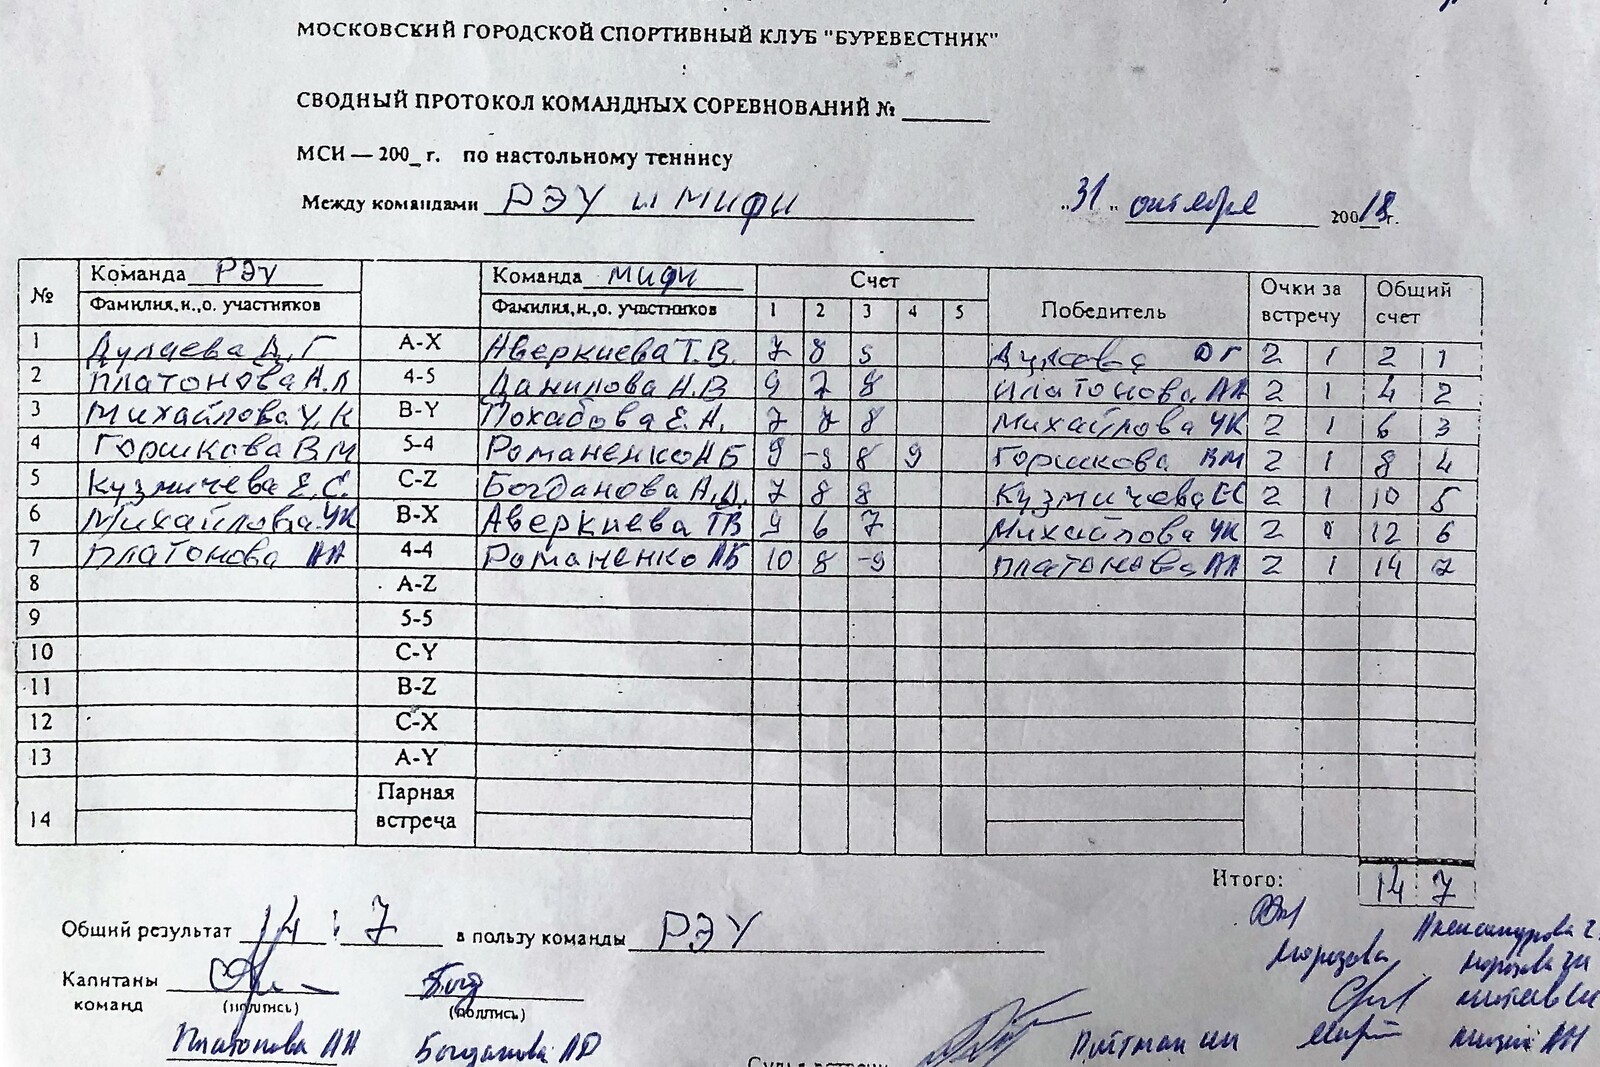 МОСКОВСКИЙ ГОРОДСКОЙ СПОРТИВНЫЙ КЛУБ "БУРЕВЕСТНИК"
СВОДНЫЙ ПРОТОКОЛ КОМАНДНЫХ СОРЕВНОВАНИЙ №
МСИ — 200_ г. по настольному теннису
Между командами РЭУ и МИФИ "31" октября 20018 г.
№ Команда РЭУ Команда МИФИ Счет Победитель Очки за встречу Общий счет
Фамилия,и.,о. участников Фамилия,и.,о. участников 1 2 3 4 5
1 Дулаева Д.Г A-X Аверкиева Т.В. 7 8 5 ДГ 2 1 2 1
2 Платонова А.А 4-5 Данилова Н.В 9 7 8 Платонова АА 2 1 4 2
3 Михайлова Ч.К B-Y Похабова Е.А. 7 7 8 Михайлова ЧК 2 1 6 3
4 Горшкова ВМ 5-4 Романенко АБ 9 -9 8 9 Горшкова ВМ 2 1 8 4
5 Кузмичева Е.С. C-Z Богданова А.Д. 7 8 8 Кузмичева ЕС 2 1 10 5
6 Михайлова ЧК B-X Аверкиева ТВ 9 6 7 Михайлова ЧК 2 1 12 6
7 Платонова АА 4-4 Романенко АБ 10 8 -9 Платонова АА 2 1 14 7
8 A-Z
9 5-5
10 C-Y
11 B-Z
12 C-X
13 A-Y
14 Парная встреча
Итого: 14 7
Общий результат 14 : 7 в пользу команды РЭУ
Морозова
Капитаны команд (подпись) (подпись)
Платонова АА Богданова АД
Судья встречи